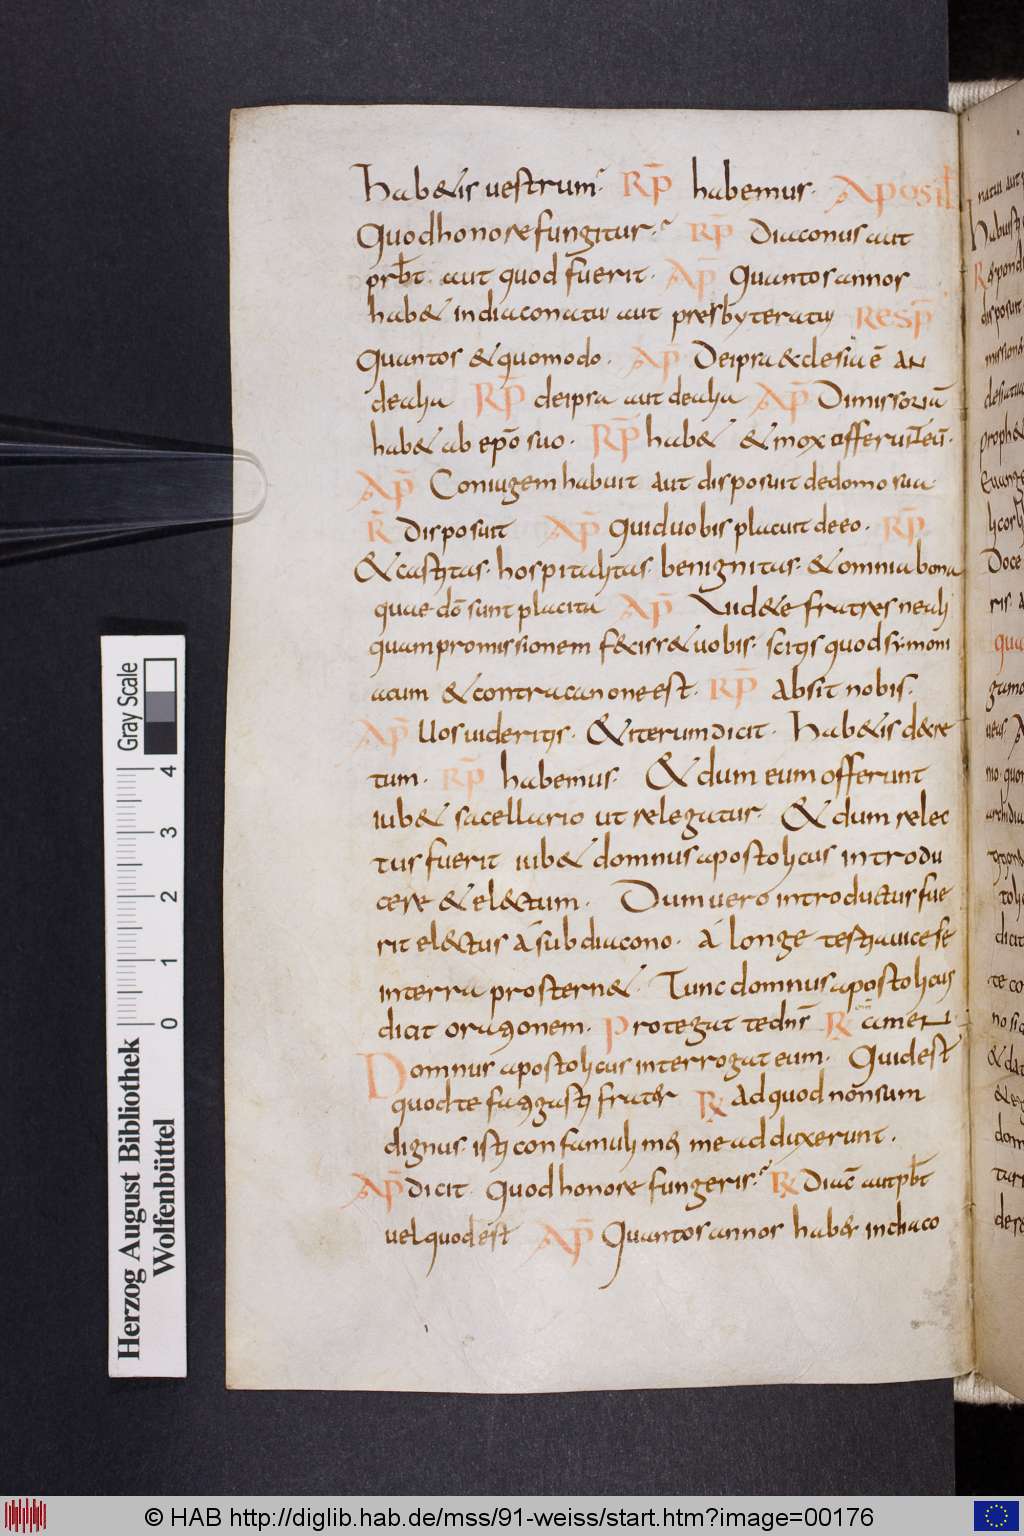 hab&is uestrum. RP̄ habemus. APosił
Quod honore fungitur. RP̄ Diaconus aut
prb̄t. aut quod fuerit. AP̄ Quantos annos
hab& in diaconatu aut presbyteratu RESP̄
Quantos & quomodo. AP̄ De ipsa & clesia ē AN
de alia RP̄ de ipsa aut de alia AP̄ Dimissoriā
hab& ab ep̄o suo. RP̄ hab& & mox offerunt eū.
AP̄ Coniugem habuit aut disposuit de domo sua
R̄ Disposuit AP̄ Quid uobis placuit de eo. RP̄
& castitas. hospitalitas. benignitas. & omnia bona
quae dō sunt placita AP̄ Uid&e fratres ne ali
quam promissionem feciss& uobis. scitis quod symoni
acum & contra canone est. RP̄ Absit nobis.
AP̄ Uos uideritis. & iterum dicit. Hab&is decre
tum. RP̄ habemus. & dum eum offerunt
iub& sacellario ut relegatur. & dum relec
tus fuerit iub& domnus apostolicus introdu
cere & electum. Dum uero introductus fue
rit electus á subdiacono. á longe testiauice se
in terra prostern&. Tunc domnus apostolicus
dicit orationem. Protegat te dn̄s R amen.
Domnus apostolicus interrogat eum. Quid est
quod te fatigasti frater R Ad quod nōn sum
dignus. isti confamuli mei me adduxerunt.
AP̄ dicit Quod honore fungeris. R Diac̄ aut pb̄t
uel quod est AP̄ Quantos annos habes in diaco
Gray Scale
4 3 2 1 0
Herzog August Bibliothek
Wolfenbüttel
© HAB http://diglib.hab.de/mss/91-weiss/start.htm?image=00176